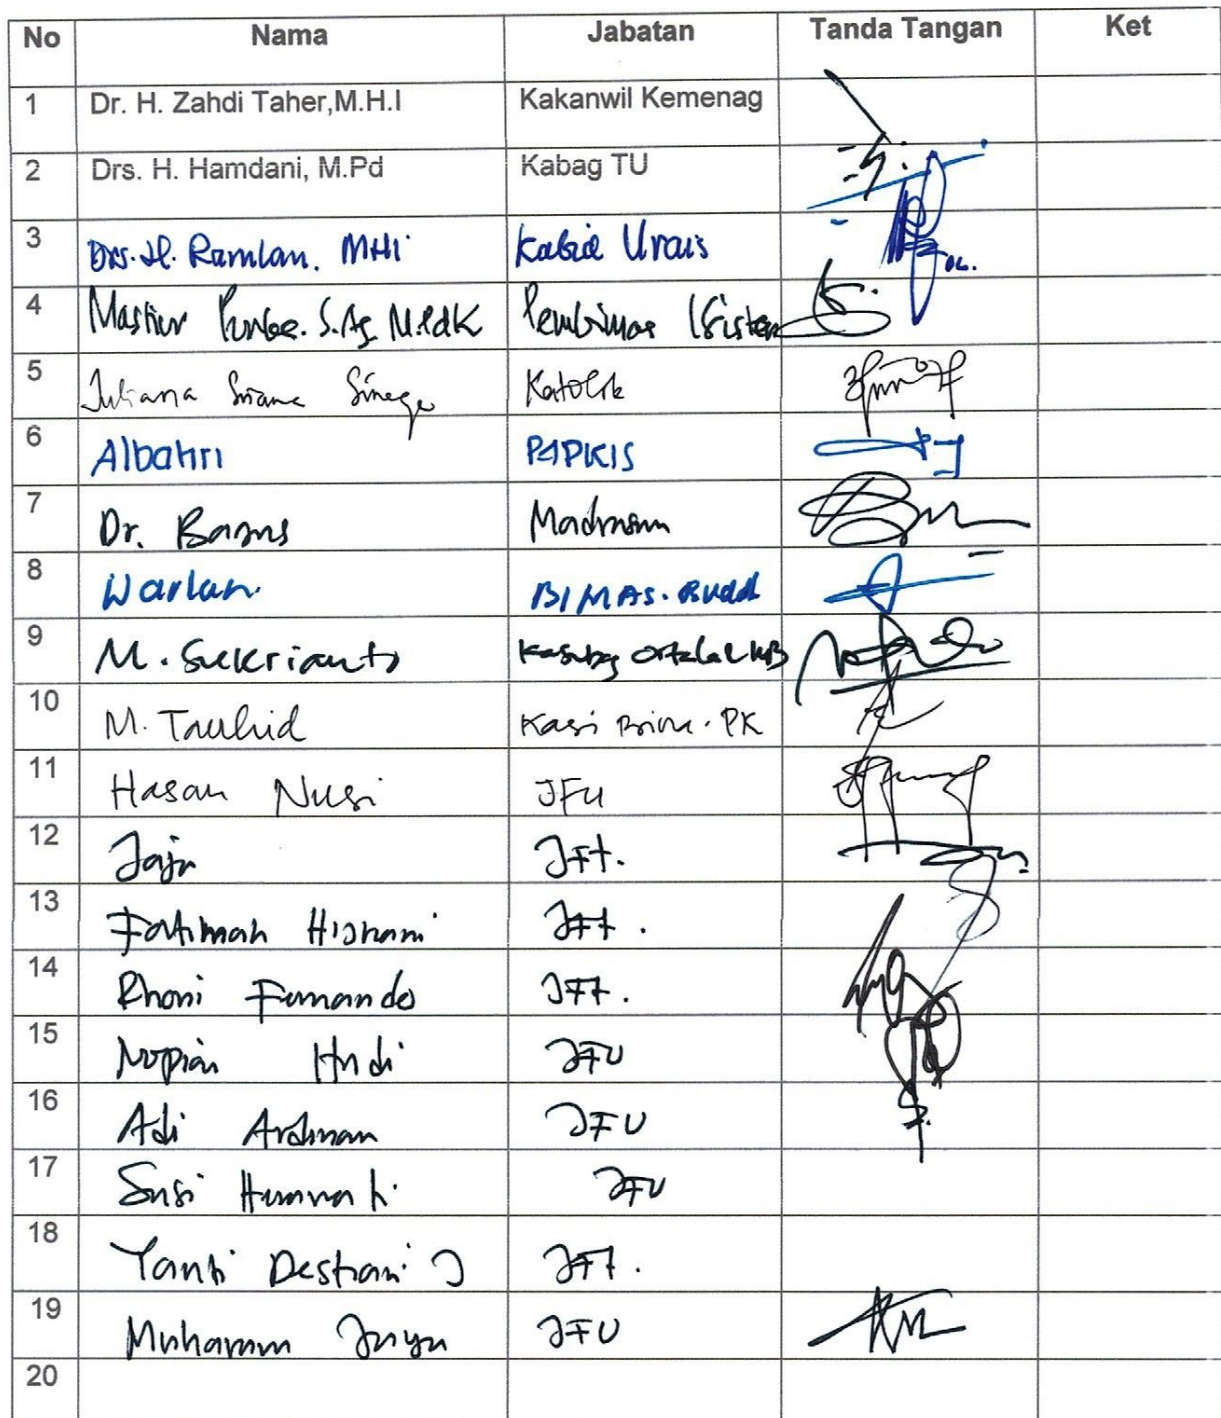 No Nama Jabatan Tanda Tangan Ket
1 Dr. H. Zahdi Taher,M.H.I Kakanwil Kemenag
2 Drs. H. Hamdani, M.Pd Kabag TU
3 Drs. H. Ramlan. MHi Kabid Urais
4 S.Ag M.PdK
5 Juliana Katolik
6 Albahri PAPKIS
7 Dr. Madrasah
8 Warlan. BIMAS. Budd
9 M. Sukrianto Kasubag
10 M. Tauhid Kasi Bina. PK
11 Hasan JFU
12 Jaja JFt.
13 Fatimah JFt.
14 Rhoni Fernando JFt.
15 Nopian JFU
16 Adi Ardiman JFU
17 Susi JFU
18 Yanti Destiani J JFt.
19 Muharam Jaya JFU
20